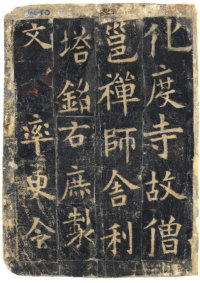 化度寺故僧
邕禪師舍利
塔銘右庶製
文　率更令